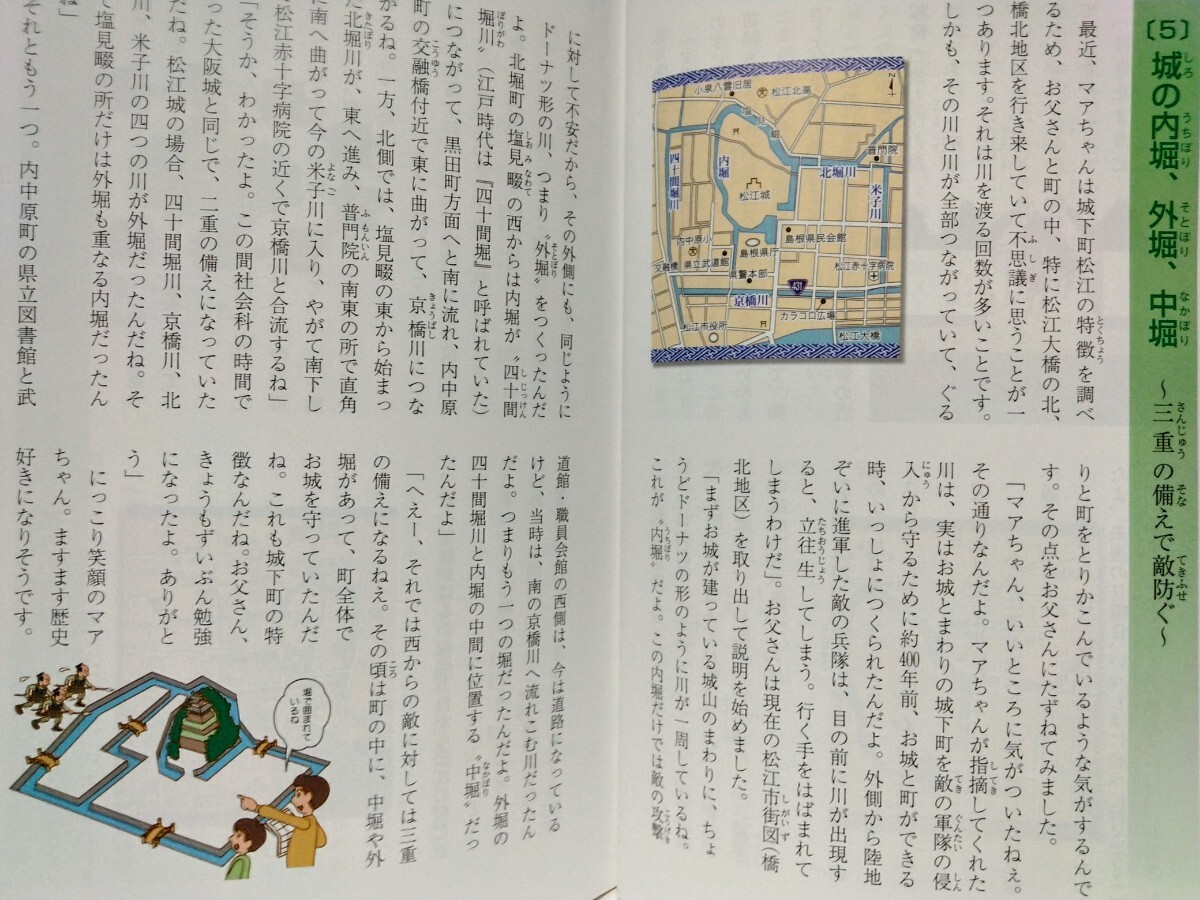 〔5〕城の内堀、外堀、中堀 ~三重の備えで敵防ぐ~
最近、マアちゃんは城下町松江の特徴を調べ
るため、お父さんと町の中、特に松江大橋の北、
橋北地区を行き来していて不思議に思うことが一
つあります。それは川を渡る回数が多いことです。
しかも、その川と川が全部つながっていて、ぐる
りと町をとりかこんでいるような気がするんで
す。その点をお父さんにたずねてみました。
「マアちゃん、いいところに気がついたねぇ。
その通りなんだよ。マアちゃんが指摘してくれた
川は、実はお城とまわりの城下町を敵の軍隊の侵
入から守るために約400年前、お城と町ができる
時、いっしょにつくられたんだよ。外側から陸地
ぞいに進軍した敵の兵隊は、目の前に川が出現す
ると、立往生してしまう。行く手をはばまれて
しまうわけだ」。お父さんは現在の松江市街図(橋
北地区)を取り出して説明を始めました。
「まずお城が建っている城山のまわりに、ちょ
うどドーナツの形のように川が一周しているね。
これが〝内堀〟だよ。この内堀だけでは敵の攻撃
小泉八雲旧居
松江北高
塩見畷
普門院
四十間堀川
内堀
北堀川
米子川
松江城
内中原小
島根県民会館
島根県庁
県立武道館
交融橋
県警本部
松江赤十字病院
431
京橋川
カラコロ広場
松江市役所
松江大橋
N
に対して不安だから、その外側にも、同じように
ドーナツ形の川、つまり〝外堀〟をつくったんだ
よ。北堀町の塩見畷の西からは内堀が〝四十間
堀川〟(江戸時代は『四十間堀』と呼ばれていた)
につながって、黒田町方面へと南に流れ、内中原
町の交融橋付近で東に曲がって、京橋川につな
がるね。一方、北側では、塩見畷の東から始まっ
た北堀川が、東へ進み、普門院の南東の所で直角
に南へ曲がって今の米子川に入り、やがて南下し
松江赤十字病院の近くで京橋川と合流するね」
「そうか、わかったよ。この間社会科の時間で
った大阪城と同じで、二重の備えになっていた
だね。松江城の場合、四十間堀川、京橋川、北
川、米子川の四つの川が外堀だったんだね。そ
て塩見畷の所だけは外堀も重なる内堀だったん
ね」
それともう一つ。内中原町の県立図書館と武
道館・職員会館の西側は、今は道路になっている
けど、当時は、南の京橋川へ流れこむ川だったん
だよ。つまりもう一つの堀だったんだよ。外堀の
四十間堀川と内堀の中間に位置する〝中堀〟だっ
たんだよ」
「へえー、それでは西からの敵に対しては三重
の備えになるねえ。その頃は町の中に、中堀や外
堀があって、町全体で
お城を守っていたんだ
ね。これも城下町の特
徴なんだね。お父さん、
きょうもずいぶん勉強
になったよ。ありがと
う」
にっこり笑顔のマア
ちゃん。ますます歴史
好きになりそうです。
堀で囲まれて
いるね